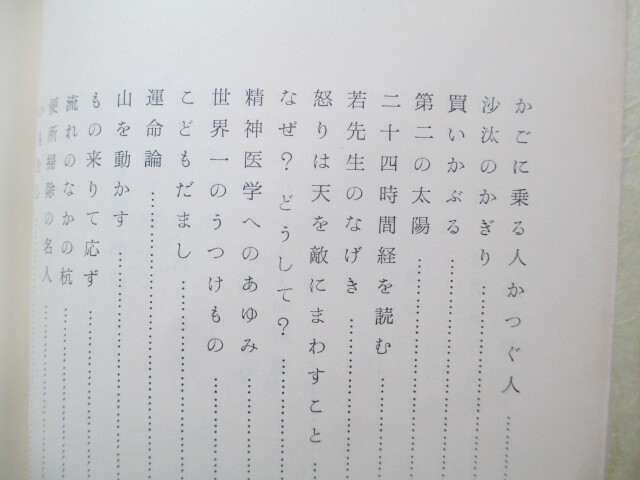 かごに乗る人かつぐ人
沙汰のかぎり
買いかぶる
第二の太陽
二十四時間経を読む
若先生のなげき
怒りは天を敵にまわすこと
なぜ？どうして？
精神医学へのあゆみ
世界一のうつけもの
こどもだまし
運命論
山を動かす
もの来りて応ず
流れのなかの杭
便所掃除の名人